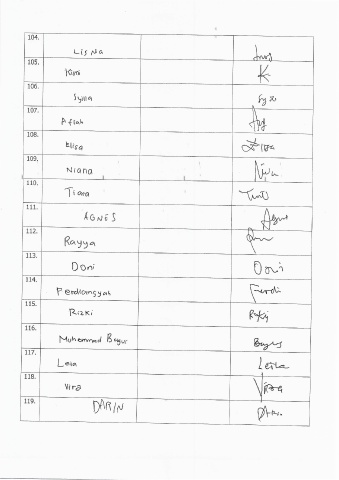 104. Lisna
105. Kimi K
106. Sylla
107. Aflah
108. Elisa
109. Niana
110. Tiara
111. AGNES Agnes
112. Rayya
113. Doni Doni
114. Ferdiansyah Ferdi
115. Rizki
116. Muhammad Bagus Bagus
117. Lela
118. Vira Vira
119. DARIN